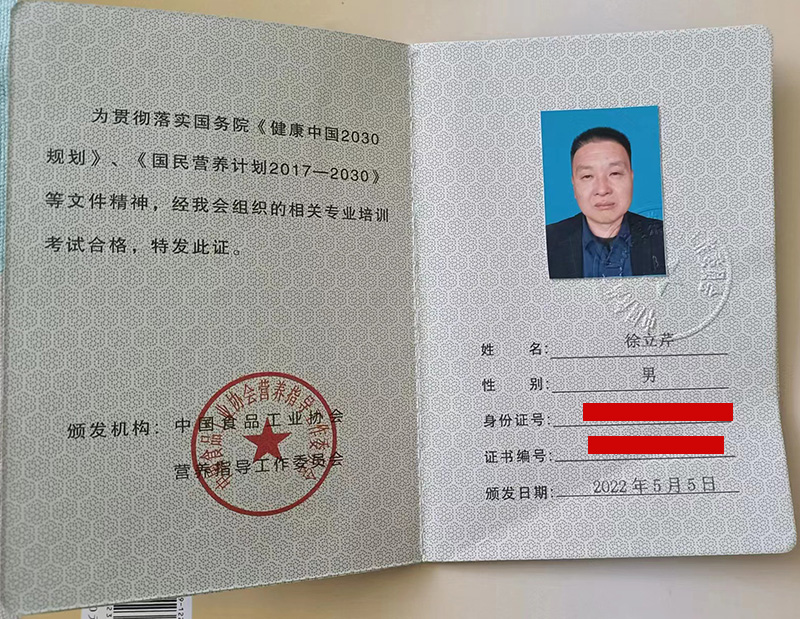 为贯彻落实国务院《健康中国2030
规划》、《国民营养计划2017—2030》
等文件精神，经我会组织的相关专业培训
考试合格，特发此证。
颁发机构：中国食品工业协会
营养指导工作委员会
中国食品工业协会营养指导工作委员会
姓 名：徐立芹
性 别：男
身份证号：
证书编号：
颁发日期：2022年5月5日